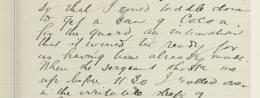 so that I could toddle down
to get a can of Cocoa
for the guard, an intimation
that it would be ready for
us having been already made.
When the sergeant shook me
up before 11.30 I rolled over
in the